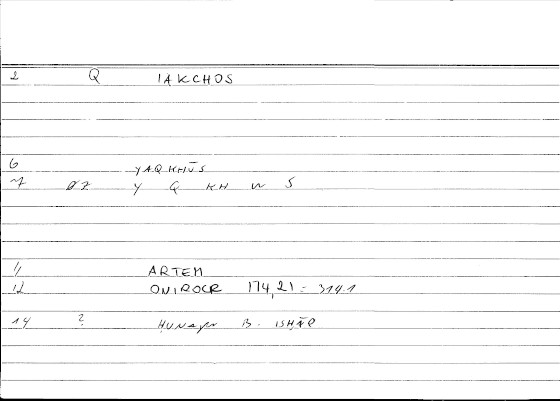 2 Q IAKCHOS
6 YAQKHŪS
7 07 Y Q KH W S
11 ARTEM
12 ONIROCR 174,21 = 314.1
14 ? ḤUNAYN B. ISḤĀQ